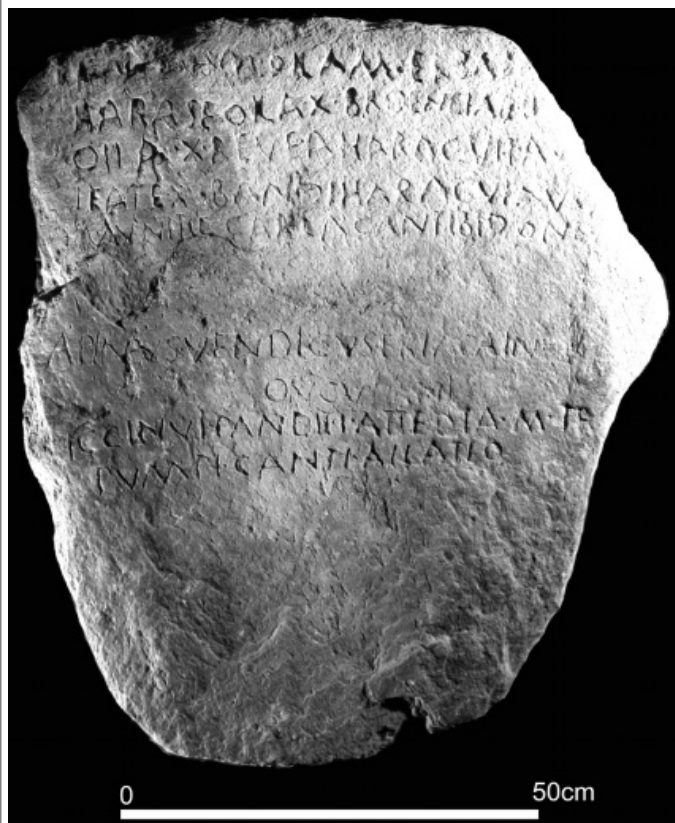 OILAM·ERBAM
HARASE OILA·X·BROENEIAE·H
OILA·X·REVE AHARACVI
IEATE·X·BANDI HARACVI AV
MVNITIE CARIA CANTIBIDONE
APINVS VENDICVS ERIACAIN
OVGVI
ICCINVI PANDITI ATTEDIA·M·TR
PVMPI CANTI AILATIO
0 50cm